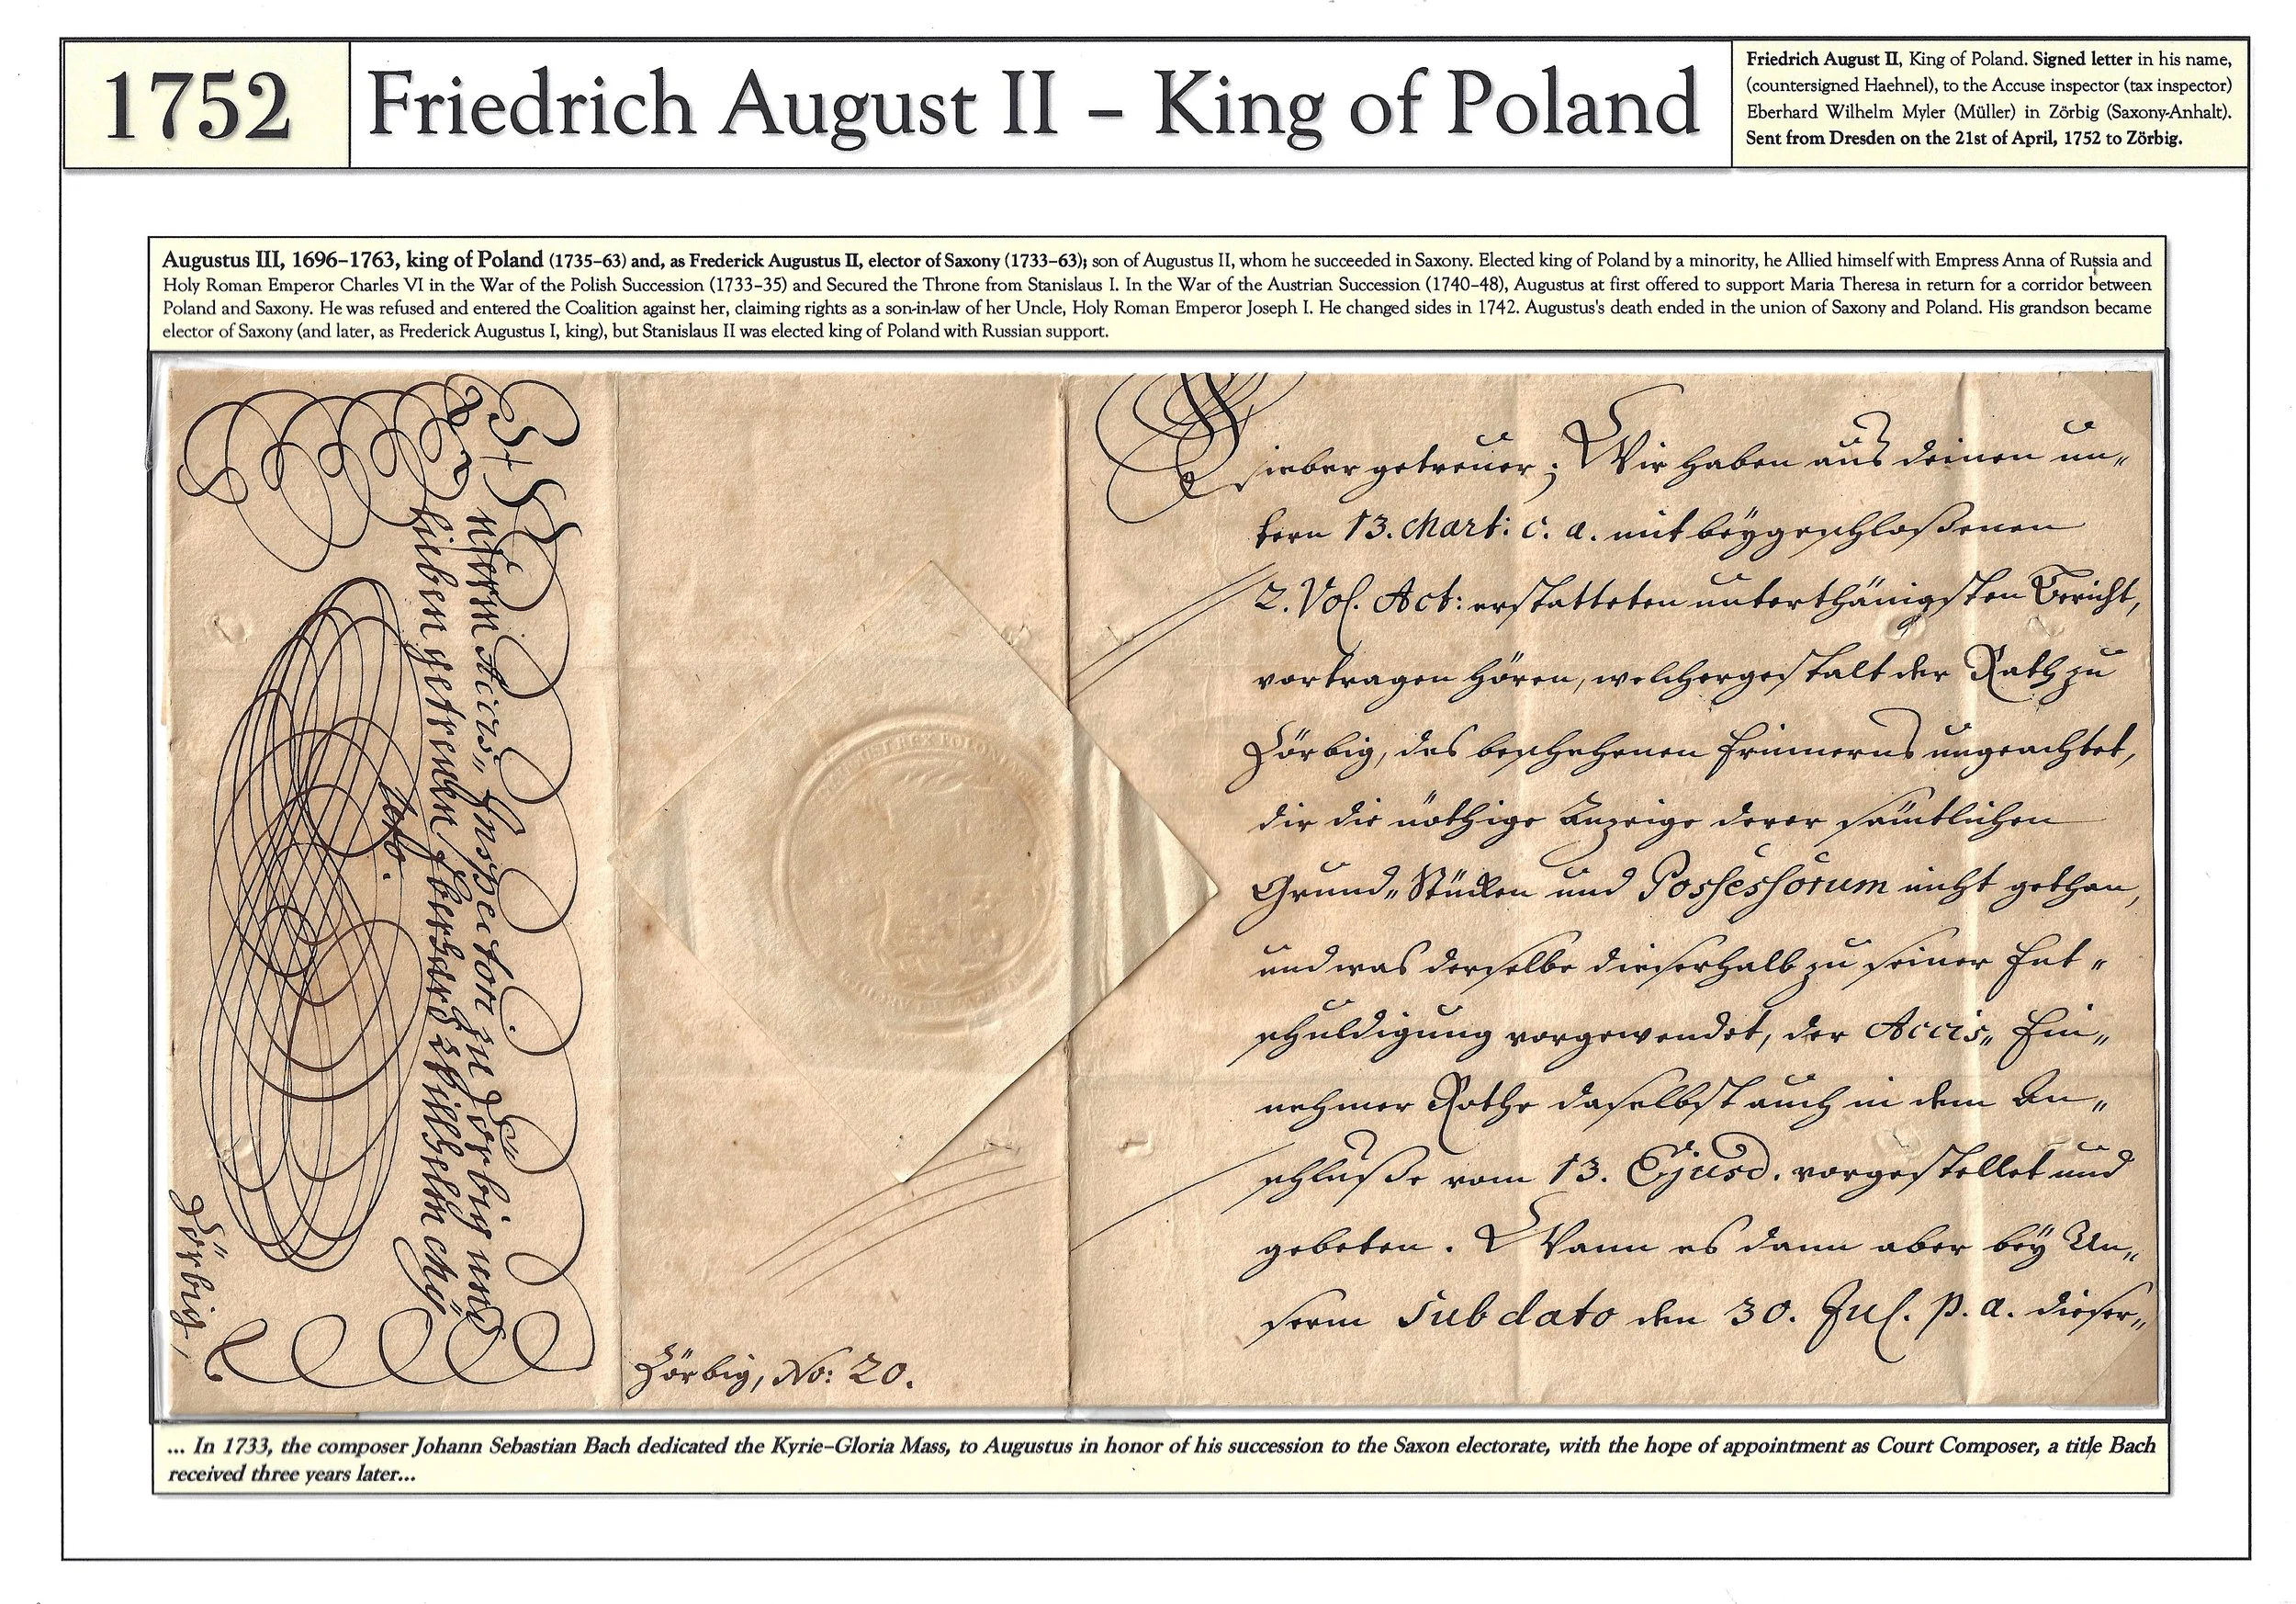 1752
Friedrich August II – King of Poland
Friedrich August II, King of Poland. Signed letter in his name,
(countersigned Haehnel), to the Accuse inspector (tax inspector)
Eberhard Wilhelm Myler (Müller) in Zörbig (Saxony-Anhalt).
Sent from Dresden on the 21st of April, 1752 to Zörbig.
Augustus III, 1696–1763, king of Poland (1735–63) and, as Frederick Augustus II, elector of Saxony (1733–63); son of Augustus II, whom he succeeded in Saxony. Elected king of Poland by a minority, he Allied himself with Empress Anna of Russia and
Holy Roman Emperor Charles VI in the War of the Polish Succession (1733–35) and Secured the Throne from Stanislaus I. In the War of the Austrian Succession (1740–48), Augustus at first offered to support Maria Theresa in return for a corridor between
Poland and Saxony. He was refused and entered the Coalition against her, claiming rights as a son-in-law of her Uncle, Holy Roman Emperor Joseph I. He changed sides in 1742. Augustus's death ended in the union of Saxony and Poland. His grandson became
elector of Saxony (and later, as Frederick Augustus I, king), but Stanislaus II was elected king of Poland with Russian support.
Unserm Accis-Inspector zu Zörbig und
Lieben getreuen, Eberhard Wilhelm
Zörbig,
REX POLON
Zörbig, No: 20.
Lieber getreuer; Wir haben aus deinen un-
term 13. Mart: c. a. mit beygeschloßenen
2. Vol. Act: erstatteten unterthänigsten Bericht,
vortragen hören, welchergestalt der Rath zu
Zörbig, des beschehenen Erinnerns ungeachtet,
dir die nöthige Anzeige derer sämtlichen
Grund-Stücken und Possessorum nicht gethan,
und was derselbe dieserhalb zu seiner Ent-
schuldigung vorgewendet, der Accis-Ein-
nehmer Rothe daselbst auch in dem An-
schluße vom 13. Ejusd. vorgestellet und
gebeten. Wann es dann aber bey Un-
serm sub dato den 30. Jul. p. a. dieser-
... In 1733, the composer Johann Sebastian Bach dedicated the Kyrie–Gloria Mass, to Augustus in honor of his succession to the Saxon electorate, with the hope of appointment as Court Composer, a title Bach
received three years later...